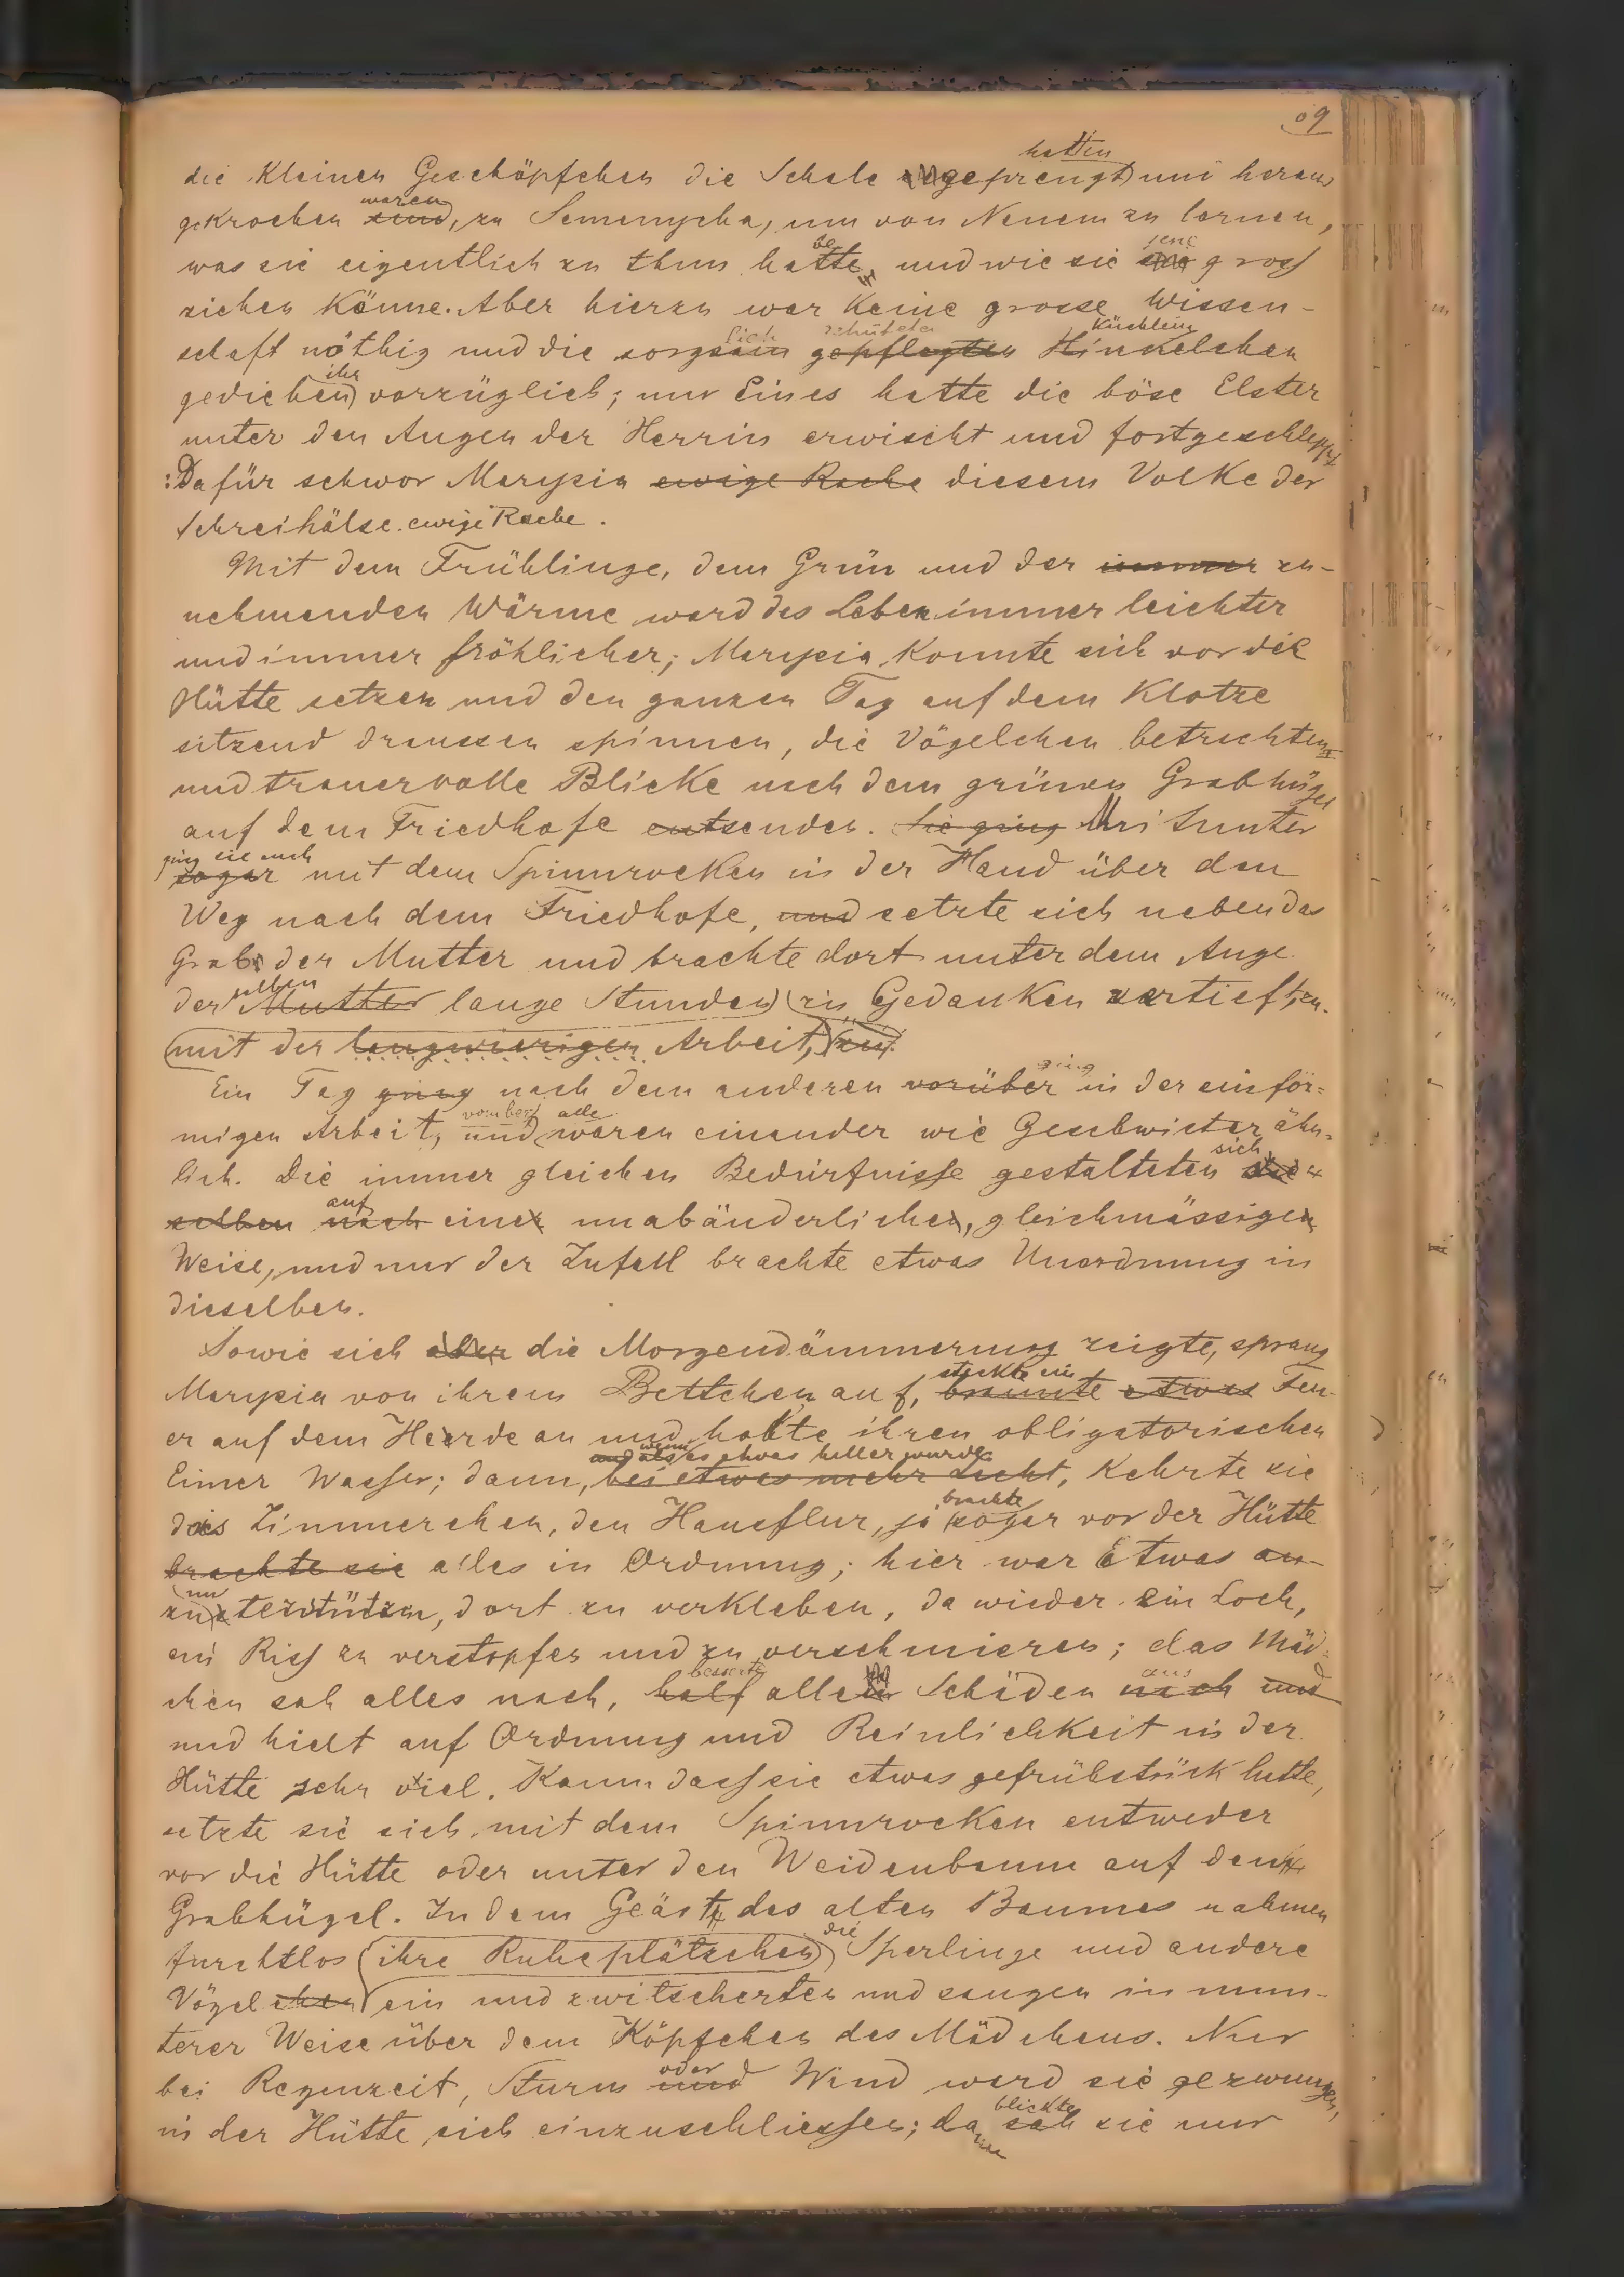 09
hatten
die kleinen Geschöpfchen die Schale gesprengt und heraus
waren
gekrochen sind, zu Semenycha, um von Neuem zu lernen,
be jene
was sie eigentlich zu thun hatte, und wie sie gross
ziehen könne. Aber hierzu war keine grosse Wissen-
lich Küchlein
schaft nöthig und die sorgsam gepflegten Hinkelchen
ihr
gediehen vorzüglich; nur Eines hatte die böse Elster
unter den Augen der Herrin erwischt und fortgeschleppt
: Dafür schwor Marysia ewige Rache diesem Volke der
Schreihälse ewige Rache.
Mit dem Frühlinge, dem Grün und der immer zu-
nehmenden Wärme ward das Leben immer leichter
und immer fröhlicher; Marysia konnte sich vor die
Hütte setzen und den ganzen Tag auf dem Klotze
sitzend draussen spinnen, die Vögelchen betrachten
und trauervolle Blicke nach dem grünen Grabhügel
auf dem Friedhofe entsenden. Sie ging Mitunter
ging sie auch
sogar mit dem Spinnrocken in der Hand über den
Weg nach dem Friedhofe, und setzte sich neben das
Grab der Mutter und brachte dort unter dem Auge
selben
der Mutter lange Stunden in Gedanken vertieft zu.
mit der langwierigen Arbeit, zu.
ging
Ein Tag ging nach dem anderen vorüber in der einför-
vorüber alle
migen Arbeit, und waren einander wie Geschwister ähn-
sich
lich. Die immer gleichen Bedürfnisse gestalteten die-
auf
selben nach einer unabänderlichen, gleichmässigen
Weise, und nur der Zufall brachte etwas Unordnung in
dieselben.
Sowie sich aber die Morgendämmerung zeigte, sprang
steckte ein
Marysia von ihrem Bettchen auf, brannte etwas Feu-
er auf dem Herde an und holte ihren obligatorischen
und als wenn es etwas heller wurde
Eimer Wasser; dann, bei etwas mehr Licht, kehrte sie
brachte
das Zimmerchen, den Hausflur, ja sogar vor der Hütte
brachte sie alles in Ordnung; hier war Etwas an-
un
zu terstützen, dort zu verkleben, da wieder ein Loch,
ein Riss zu verstopfen und zu verschmieren; das Mäd-
besserte aus
chen sah alles nach, half allen Schäden nach und
und hielt auf Ordnung und Reinlichkeit in der
Hütte sehr viel. Kaum dass sie etwas gefrühstückt hatte,
setzte sie sich mit dem Spinnrocken entweder
vor die Hütte oder unter den Weidenbaum auf den
Grabhügel. In dem Geäst des alten Baumes nahmen
die
furchtlos ihre Ruheplätzchen Sperlinge und andere
Vögelchen ein und zwitscherten und sangen in mun-
terer Weise über dem Köpfchen des Mädchens. Nur
oder
bei Regenzeit, Sturm und Wind ward sie gezwungen,
blickte
in der Hütte sich einzuschliessen; dann sah sie nur